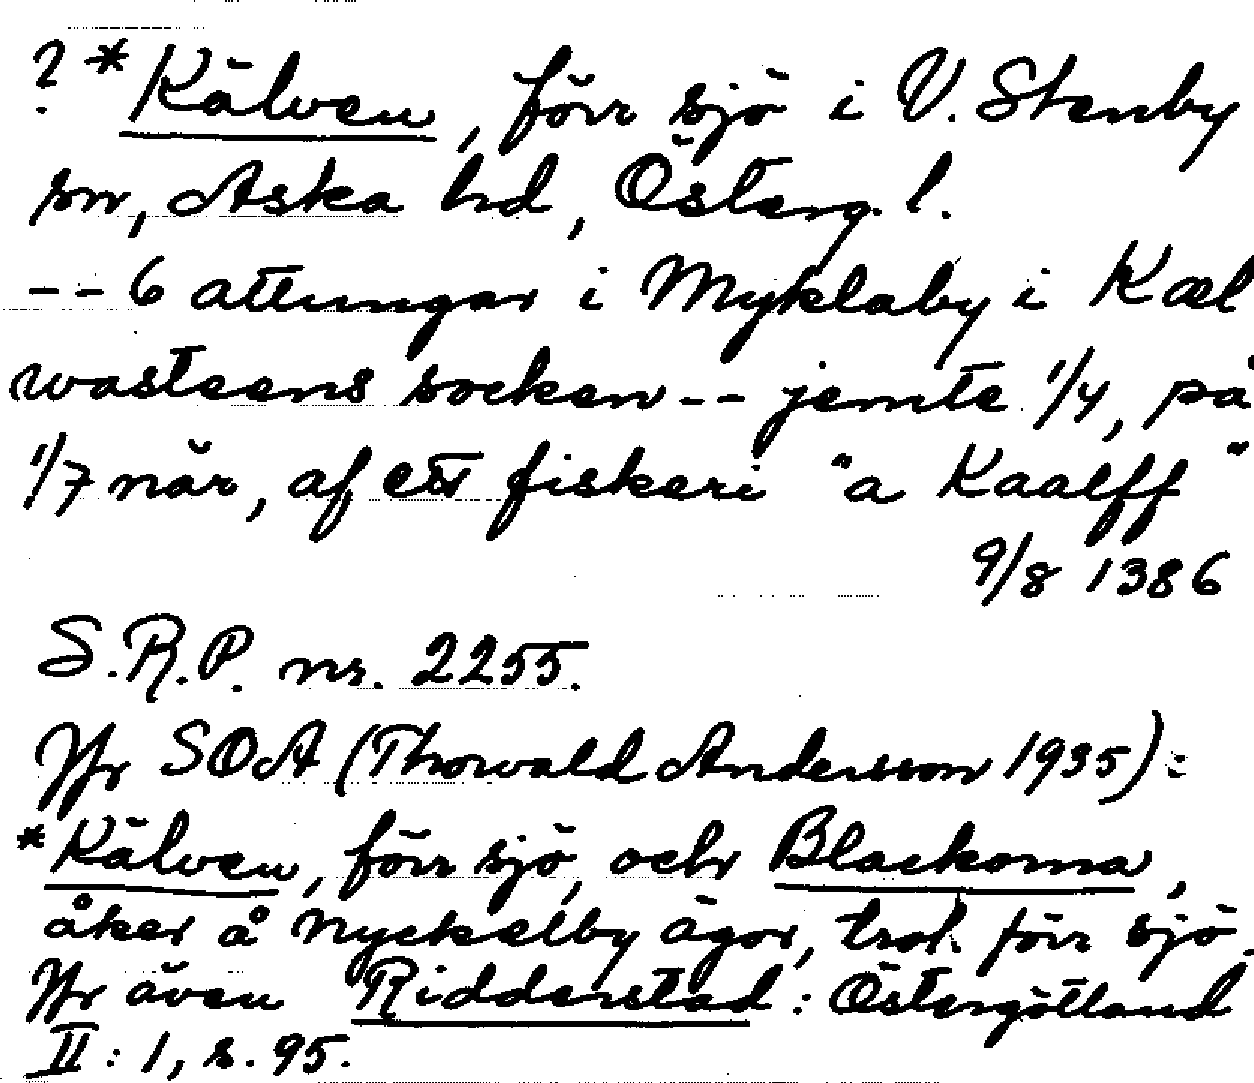 ? *Kälven, förr sjö i V. Stenby
sn, Aska hd, Österg. l.
-- 6 attungar i Myklaby i Kæl
wasteens socken -- jemte 1/4, på
1/7 när, af ett fiskeri "a Kaalff"
9/8 1386
S.R.P. nr. 2255.
Jfr SOA (Thorvald Andersson 1935):
*Kälven, förr sjö, och Blackorna,
åker å Nyckelby ägor, trol. förr sjö.
Jfr även Ridderstad: Östergötland
II: 1, s. 95.